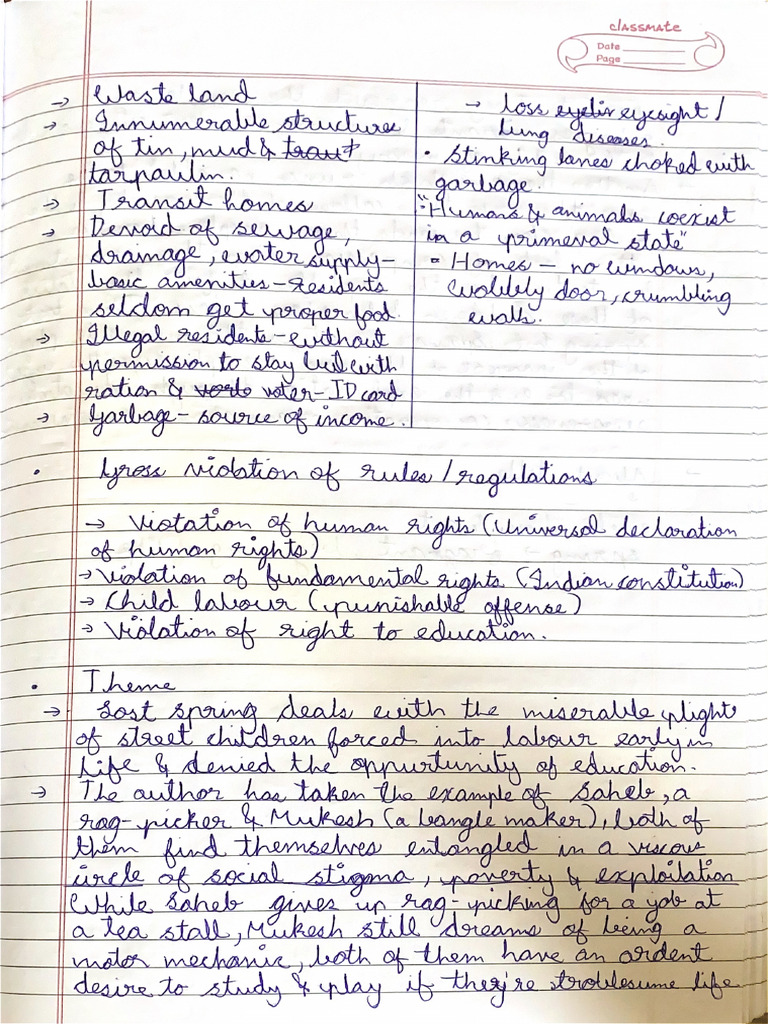 classmate
Date
Page
→ Waste land
→ Innumerable structures
of tin, mud &
tarpaulin.
→ Transit homes
→ Devoid of sewage,
drainage, water supply-
basic amenities-residents
seldom get proper food.
→ Illegal residents-without
permission to stay but with
ration & voter-ID card
→ Garbage- source of income.
→ loss eyesight /
lung diseases.
• Stinking lanes choked with
garbage.
"Humans & animals coexist
in a primeval state"
Homes — no windows,
door, crumbling
walls.
• Gross violation of rules/regulations
→ Violation of human rights (Universal declaration
of human rights)
→ Violation of fundamental rights (Indian constitution)
→ Child labour (punishable offense)
→ Violation of right to education.
• Theme
→ Lost spring deals with the miserable plight
of street children forced into labour early in
life & denied the oppurtunity of education.
→ The author has taken the example of Saheb, a
rag-picker & Mukesh (a bangle maker), both of
them find themselves entangled in a viscous
circle of social stigma, poverty & exploilation
While Saheb gives up rag-picking for a job at
a tea stall, Mukesh still dreams of being a
motor mechanic, both of them have an ardent
desire to study & play if they're troublesume life